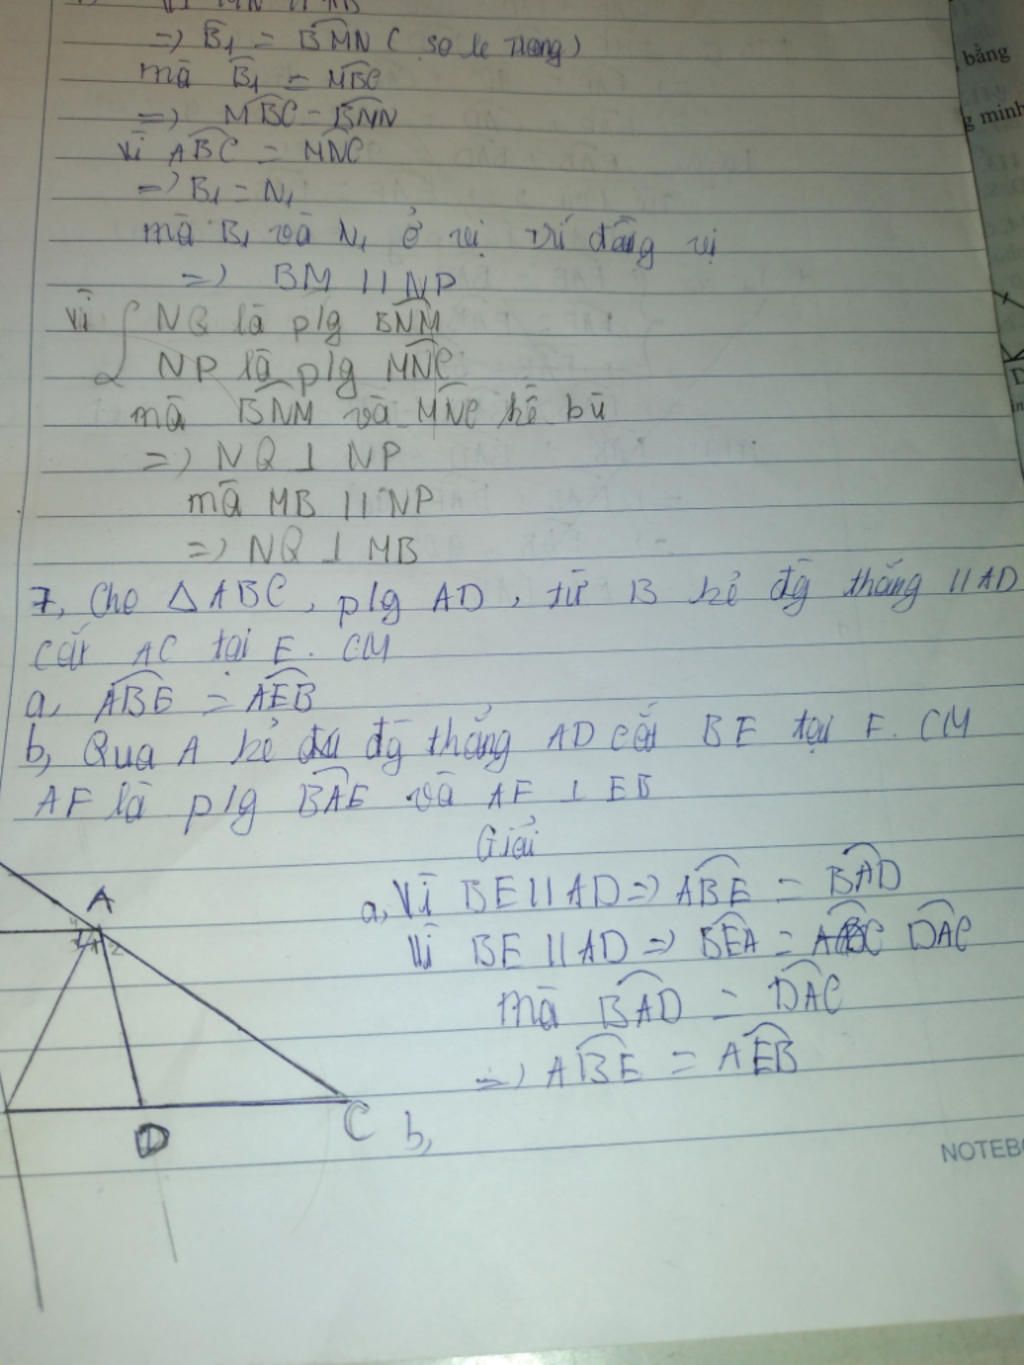 =) B₁ = BMN ( so le trong)
mà B₁ = MBC
=) MBC = BMN
Vì ABC = MNC
=) B₁ = N₁
mà B₁ và N₁ ở vị trí đồng vị
=) BM // NP
Vì { NQ là p/g BNM
NP là p/g MNC
mà BNM và MNC kề bù
=) NQ ⊥ NP
mà MB // NP
=) NQ ⊥ MB
7, Cho △ABC, p/g AD, từ B kẻ đg thẳng // AD
cắt AC tại E. CM
a, ABE = AEB
b, Qua A kẻ đg thẳng AD cắt BE tại F. CM
AF là p/g BAE và AF ⊥ EB
Giải
a, Vì BE // AD =) ABE = BAD
Vì BE // AD =) BEA = DAC
mà BAD = DAC
=) ABE = AEB
b,
A
1 2
D
C
bằng
g minh
D
in
NOTEB